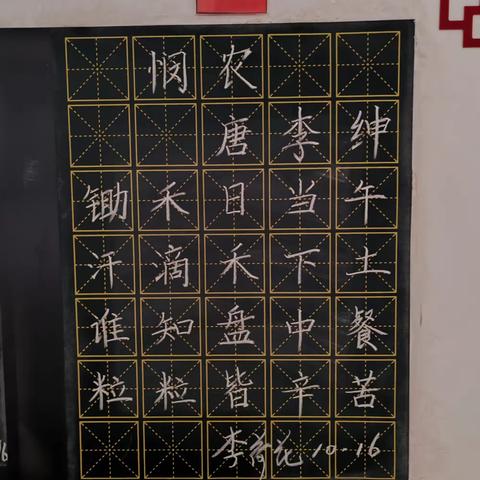 悯农
唐李绅
锄禾日当午
汗滴禾下土
谁知盘中餐
粒粒皆辛苦
李荷花 10-16